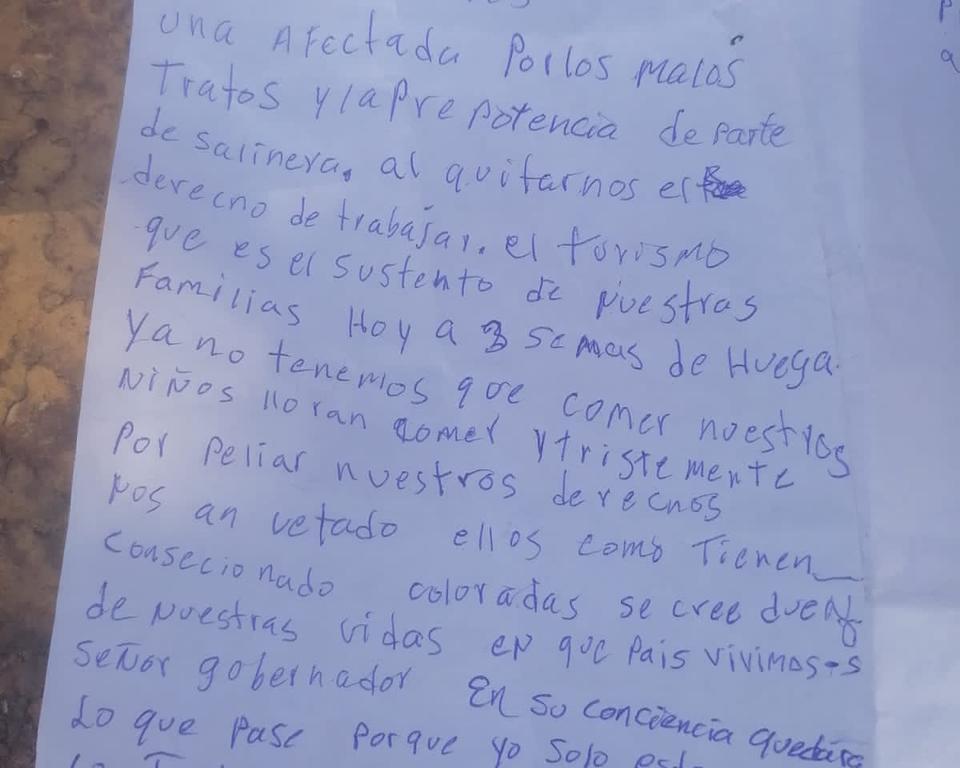 una Afectada Por los malos
Tratos y la Pre potencia de parte
de salinera. al quitarnos el
derecho de trabajar. el turismo
que es el sustento de nuestras
Familias Hoy a 3 semas de Huega.
ya no tenemos que comer nuestros
Niños lloran comer y tristemente
Por peliar nuestros derechos
nos an vetado ellos como Tienen
Consecionado coloradas se cree dueñ
de nuestras vidas en que Pais vivimos
señor gobernador En su conciencia quedara
Lo que pase Porque yo solo